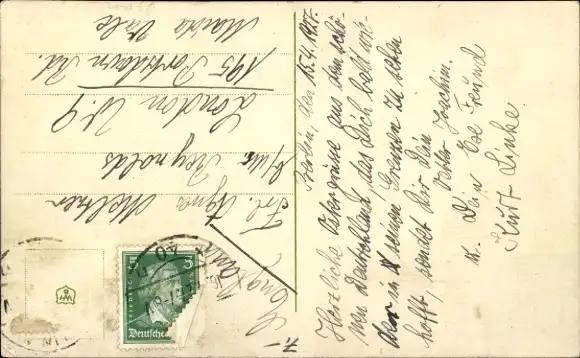 Berlin, den 15.4.1927.
Herzliche Ostergrüße aus dem schö-
nen Deutschland, das Dich bald wie-
der in seinen Grenzen zu sehen
hofft, sendet Dir Dein
Vetter Joachim.
u. Dein Ese Freund
Kurt Linke
Frl. Agnes Meltner
b/Mr. Reynolds
London W.9
195 Portsdown Rd.
Maida Vale
5
Deutsches
7.-